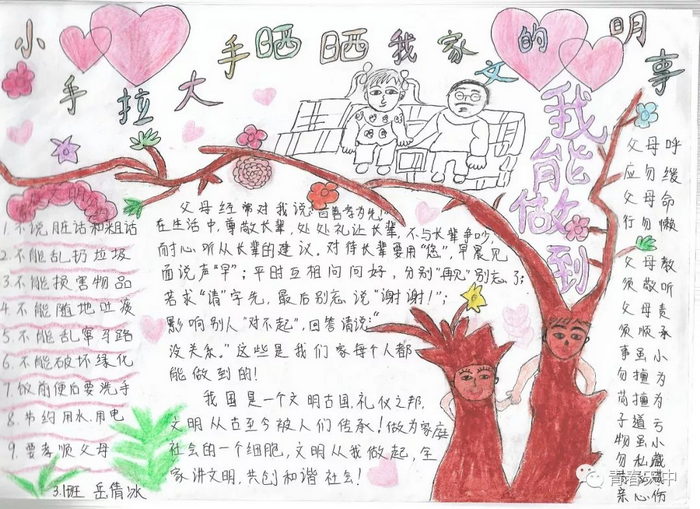 小手拉大手晒晒我家文明的事
我能做到
1.不说脏话和粗话
2.不能乱扔垃圾
3.不能损害物品
4.不能随地吐痰
5.不能乱穿马路
6.不能破坏绿化
7.饭前便后要洗手
8.节约用水.用电
9.要孝顺父母
3.1班 岳倩冰
父母经常对我说"百善孝为先"
在生活中,尊敬长辈,处处礼让长辈,不与长辈争吵,
耐心听从长辈的建议。对待长辈要用"您",早晨见
面说声"早";平时互相问问好,分别"再见"别忘了;
若求"请"字先,最后别忘说"谢谢!";
影响别人"对不起",回答请说:"
没关系。"这些是我们家每个人都
能做到的!
我国是一个文明古国,礼仪之邦,
文明从古至今被人们传承!做为家庭
社会的一个细胞,文明从我做起,全
家讲文明,共创和谐社会!
父母呼
应勿缓
父母命
行勿懒
父母教
须敬听
父母责
须顺承
事虽小
勿擅为
苟擅为
子道亏
物虽小
勿私藏
亲心伤